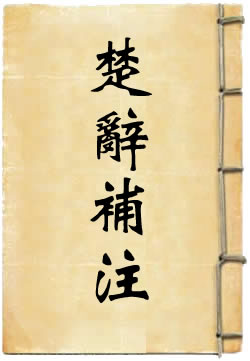 楚辭補注